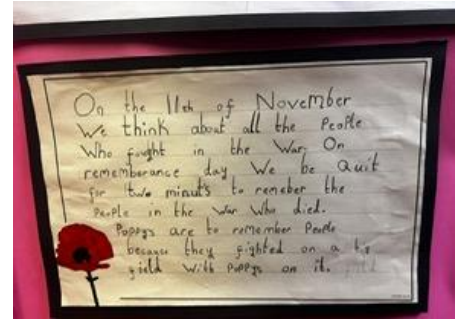 On the 11th of November
We think about all the People
Who fought in the War. On
rememberance day We be Quit
for two minuts to remeber the
People in the War Who died.
Poppys are to remember People
because they fighted on a
field With Poppys on it.